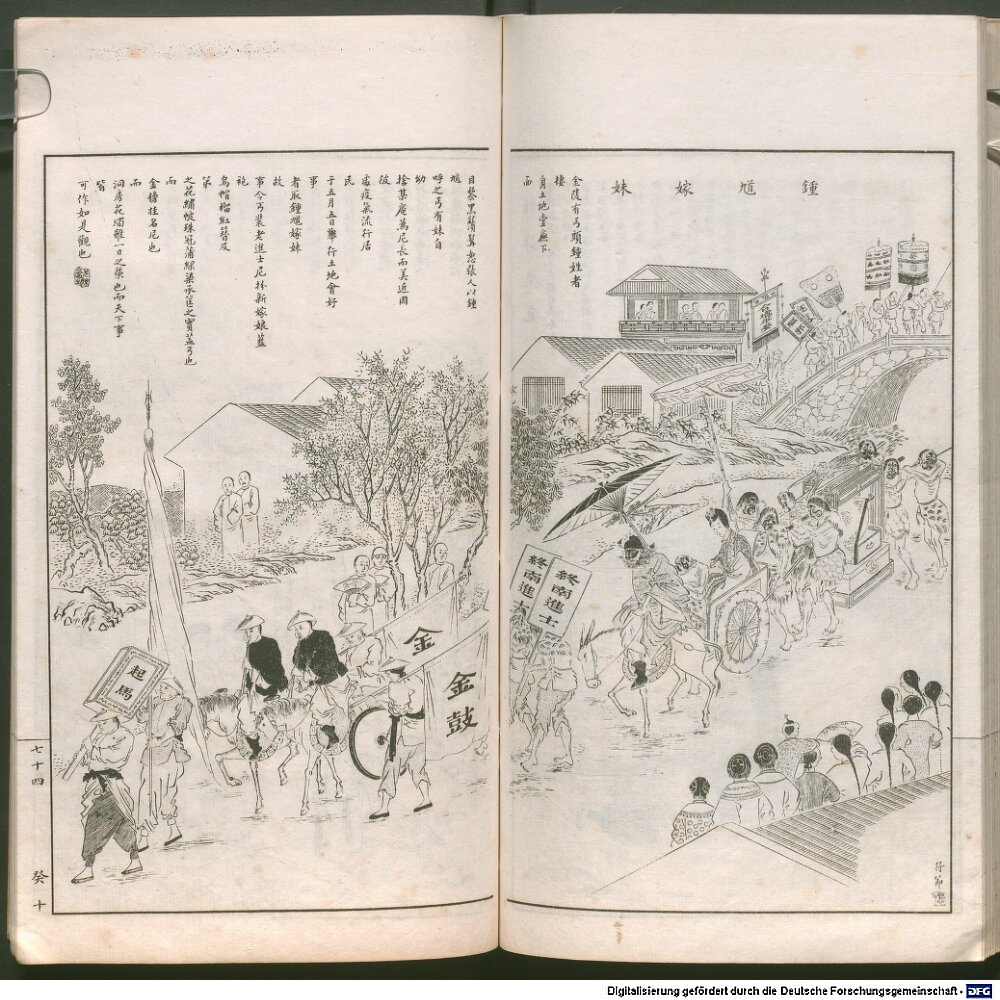 鍾馗嫁妹
金陵有丐頭鍾姓者棲
身土地堂廡下而
目黎黑鬚髯怒張人以鍾馗
呼之丐有妹自幼
捨某庵為尼長而美近因彼
處疫氣流行居民
于五月五日舉行土地會好事
者取鍾馗嫁妹故
事令丐裝老進士尼扮新嫁娘藍袍
烏帽榴紅簪及第
之花繡帔珠冠蒲綠染承筐之實蓋丐也而
金榜挂名尼也而
洞房花燭雖一日之榮也而天下事皆
可作如是觀也
終南進士
終南進士
金
金鼓
起馬
七十四
癸十
符節
Digitalisierung gefördert durch die Deutsche Forschungsgemeinschaft - DFG